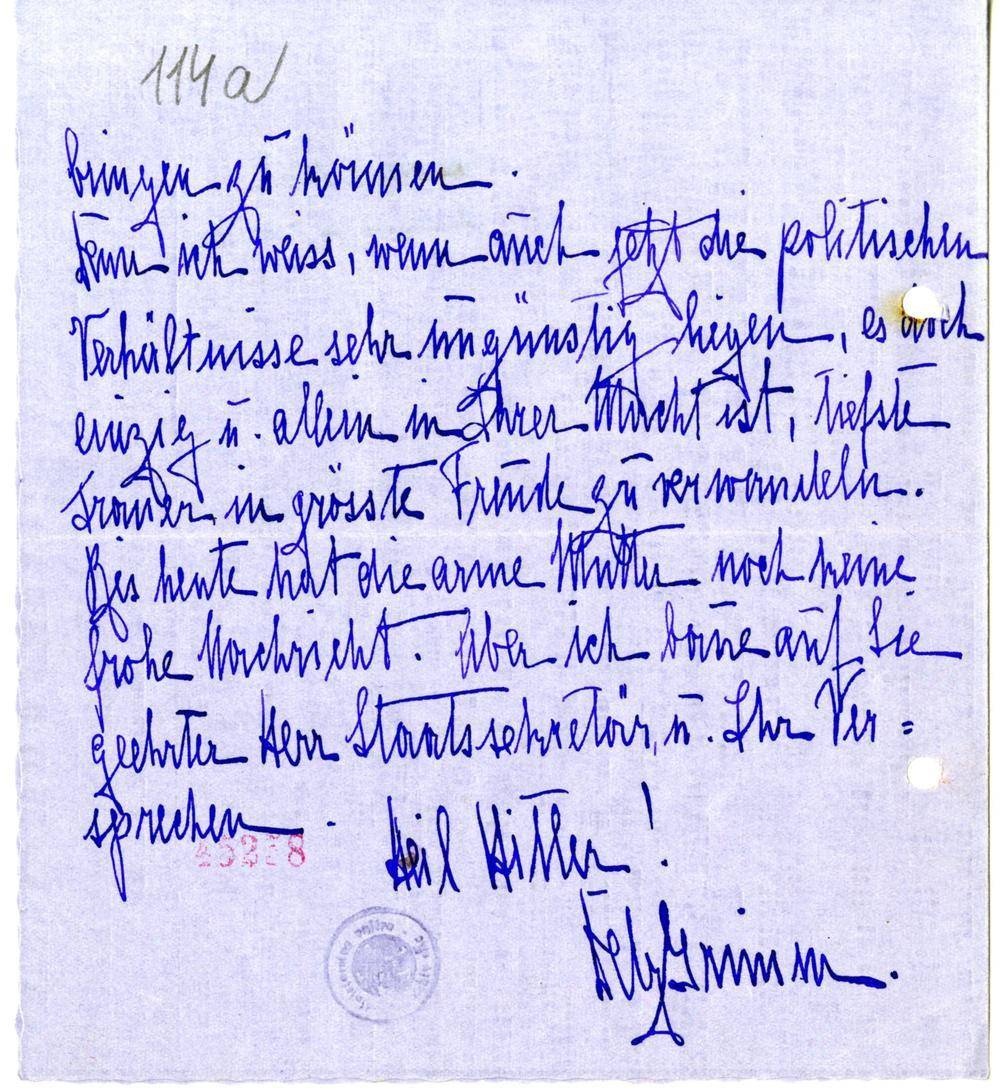 114a
bringen zu können.
Denn ich weiss, wenn auch jetzt die politischen
Verhältnisse sehr ungünstig liegen, es doch
einzig u. allein in Ihrer Macht ist, tiefste
Trauer in grösste Freude zu verwandeln.
Bis heute hat die arme Mutter noch keine
frohe Nachricht. Aber ich baue auf Sie
geehrter Herr Staatssekretär, u. Ihr Ver=
sprechen.
Heil Hitler!
Grimm.